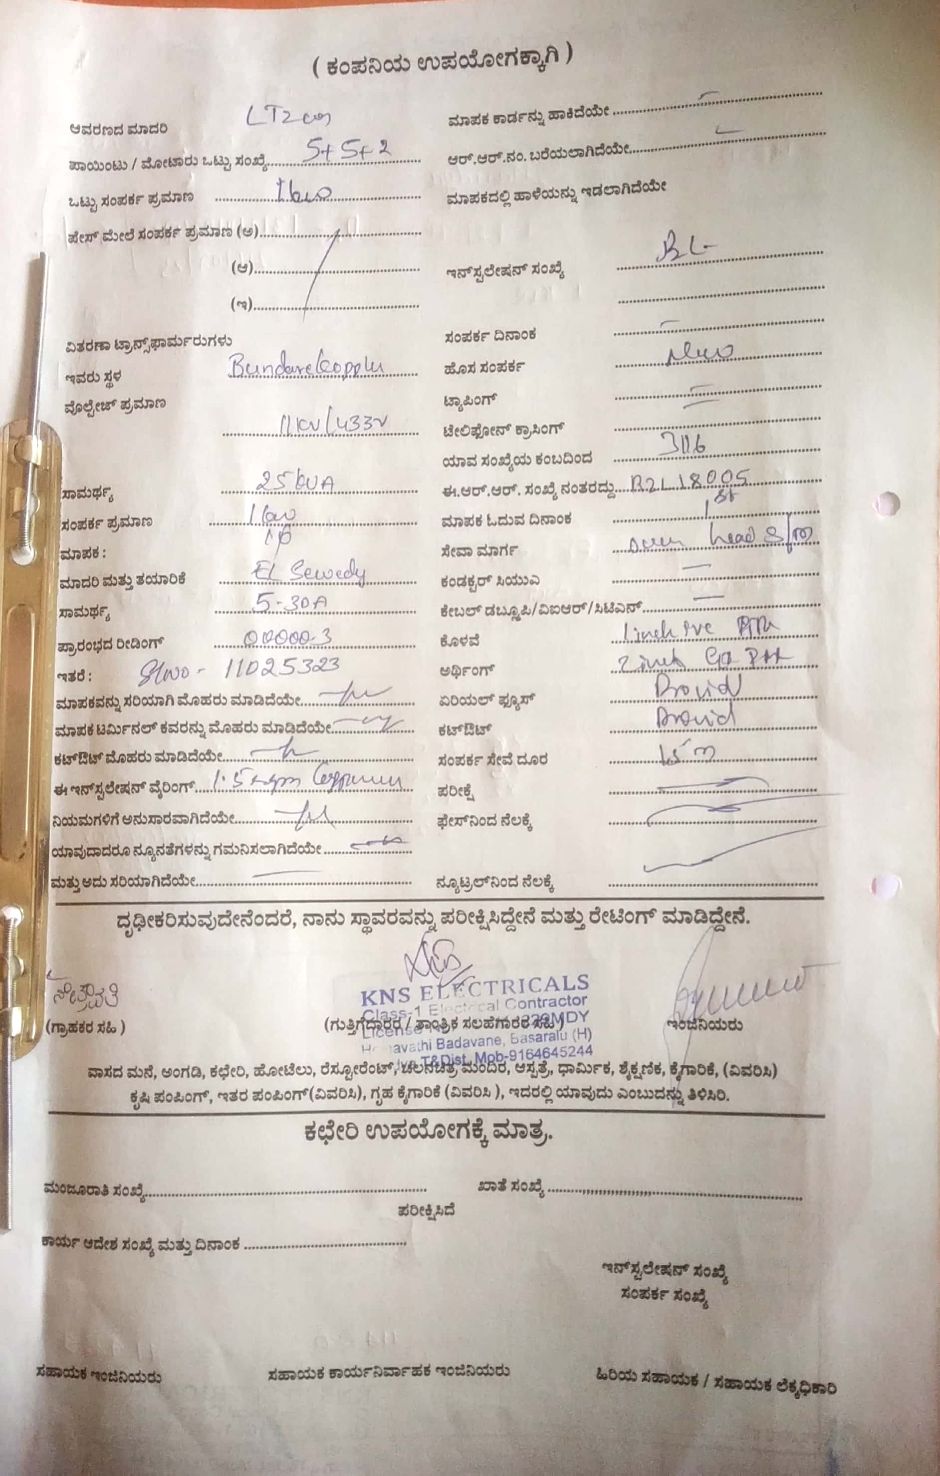 ( ಕಂಪನಿಯ ಉಪಯೋಗಕ್ಕಾಗಿ )
ಆವರಣದ ಮಾದರಿ LT2 ಮಾಪಕ ಕಾರ್ಡನ್ನು ಹಾಕಿದೆಯೇ
ಪಾಯಿಂಟು / ಮೋಟಾರು ಒಟ್ಟು ಸಂಖ್ಯೆ 5+5+2 ಆರ್.ಆರ್.ನಂ. ಬರೆಯಲಾಗಿದೆಯೇ
ಒಟ್ಟು ಸಂಪರ್ಕ ಪ್ರಮಾಣ 1kw ಮಾಪಕದಲ್ಲಿ ಹಾಳೆಯನ್ನು ಇಡಲಾಗಿದೆಯೇ
ಫೇಸ್ ಮೇಲೆ ಸಂಪರ್ಕ ಪ್ರಮಾಣ (ಅ)
(ಆ) ಇನ್‌ಸ್ಟಲೇಷನ್ ಸಂಖ್ಯೆ BL-
(ಇ)
ವಿತರಣಾ ಟ್ರಾನ್ಸ್‌ಫಾರ್ಮರುಗಳು ಸಂಪರ್ಕ ದಿನಾಂಕ
ಇವರು ಸ್ಥಳ ಹೊಸ ಸಂಪರ್ಕ New
ವೊಲ್ಟೇಜ್ ಪ್ರಮಾಣ 11KV/433V ಟ್ಯಾಪಿಂಗ್
ಟೇಲಿಫೋನ್ ಕ್ರಾಸಿಂಗ್
ಯಾವ ಸಂಖ್ಯೆಯ ಕಂಬದಿಂದ
ಸಾಮರ್ಥ್ಯ 25 KVA ಈ.ಆರ್.ಆರ್. ಸಂಖ್ಯೆ ನಂತರದ್ದು B2L18005
ಸಂಪರ್ಕ ಪ್ರಮಾಣ 1kw ಮಾಪಕ ಓದುವ ದಿನಾಂಕ 1st
ಮಾಪಕ : ಸೇವಾ ಮಾರ್ಗ over head s/m
ಮಾದರಿ ಮತ್ತು ತಯಾರಿಕೆ EL Sewedy ಕಂಡಕ್ಟರ್ ಸಿಯುಎ
ಸಾಮರ್ಥ್ಯ 5-30A ಕೇಬಲ್ ಡಬ್ಲೂಪಿ/ವಿಐಆರ್/ಸಿಟಿಎನ್
ಪ್ರಾರಂಭದ ರೀಡಿಂಗ್ 00000.3 ಕೊಳವೆ 1 inch PVC
ಇತರೆ : Slno - 11025323 ಅರ್ಥಿಂಗ್ 2 inch
ಮಾಪಕವನ್ನು ಸರಿಯಾಗಿ ಮೊಹರು ಮಾಡಿದೆಯೇ ಏರಿಯಲ್ ಫ್ಯೂಸ್ Provid
ಮಾಪಕ ಟರ್ಮಿನಲ್ ಕವರನ್ನು ಮೊಹರು ಮಾಡಿದೆಯೇ ಕಟ್‌ಔಟ್ Provid
ಕಟ್‌ಔಟ್ ಮೊಹರು ಮಾಡಿದೆಯೇ ಸಂಪರ್ಕ ಸೇವೆ ದೂರ 15 m
ಈ ಇನ್‌ಸ್ಟಲೇಷನ್ ವೈರಿಂಗ್ 1.5 ಪರೀಕ್ಷೆ
ನಿಯಮಗಳಿಗೆ ಅನುಸಾರವಾಗಿದೆಯೇ ಫೇಸ್‌ನಿಂದ ನೆಲಕ್ಕೆ
ಯಾವುದಾದರೂ ನ್ಯೂನತೆಗಳನ್ನು ಗಮನಿಸಲಾಗಿದೆಯೇ
ಮತ್ತು ಅದು ಸರಿಯಾಗಿದೆಯೇ ನ್ಯೂಟ್ರಲ್‌ನಿಂದ ನೆಲಕ್ಕೆ
ದೃಢೀಕರಿಸುವುದೇನೆಂದರೆ, ನಾನು ಸ್ಥಾವರವನ್ನು ಪರೀಕ್ಷಿಸಿದ್ದೇನೆ ಮತ್ತು ರೇಟಿಂಗ್ ಮಾಡಿದ್ದೇನೆ.
KNS ELECTRICALS
Class-1 Electrical Contractor
(ಗ್ರಾಹಕರ ಸಹಿ ) (ಗುತ್ತಿಗೆದಾರರ / ತಾಂತ್ರಿಕ ಸಲಹೆಗಾರರ ಸಹಿ) ಇಂಜಿನಿಯರು
Badavane, Basaralu (H)
T&Dist. Mob-9164645244
ವಾಸದ ಮನೆ, ಅಂಗಡಿ, ಕಛೇರಿ, ಹೋಟೆಲು, ರೆಸ್ಟೋರೆಂಟ್, ಚಲನಚಿತ್ರ ಮಂದಿರ, ಆಸ್ಪತ್ರೆ, ಧಾರ್ಮಿಕ, ಶೈಕ್ಷಣಿಕ, ಕೈಗಾರಿಕೆ, (ವಿವರಿಸಿ)
ಕೃಷಿ ಪಂಪಿಂಗ್, ಇತರ ಪಂಪಿಂಗ್(ವಿವರಿಸಿ), ಗೃಹ ಕೈಗಾರಿಕೆ (ವಿವರಿಸಿ ), ಇದರಲ್ಲಿ ಯಾವುದು ಎಂಬುದನ್ನು ತಿಳಿಸಿರಿ.
ಕಛೇರಿ ಉಪಯೋಗಕ್ಕೆ ಮಾತ್ರ.
ಮಂಜೂರಾತಿ ಸಂಖ್ಯೆ ಖಾತೆ ಸಂಖ್ಯೆ
ಪರೀಕ್ಷಿಸಿದೆ
ಕಾರ್ಯ ಆದೇಶ ಸಂಖ್ಯೆ ಮತ್ತು ದಿನಾಂಕ
ಇನ್‌ಸ್ಟಲೇಷನ್ ಸಂಖ್ಯೆ
ಸಂಪರ್ಕ ಸಂಖ್ಯೆ
ಸಹಾಯಕ ಇಂಜಿನಿಯರು ಸಹಾಯಕ ಕಾರ್ಯನಿರ್ವಾಹಕ ಇಂಜಿನಿಯರು ಹಿರಿಯ ಸಹಾಯಕ / ಸಹಾಯಕ ಲೆಕ್ಕಧಿಕಾರಿ